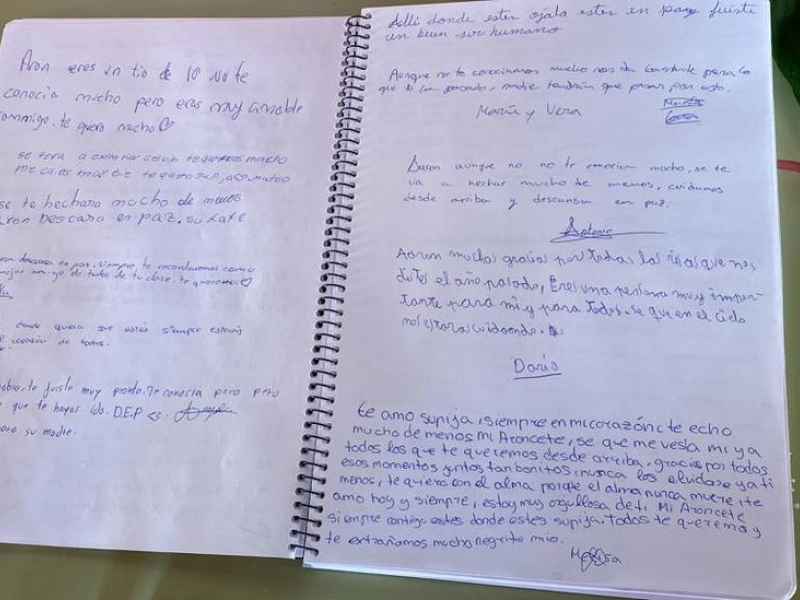 Aron eres un tio de 10 No te
conocia mucho pero eras muy amable
conmigo. te quero mucho
se te a extrañar
se te hechara mucho de menos
Aron Descasa en paz.
descansa en paz, siempre te recordaremos como
mejor amigo de todos de tu clase, te queremos
donde quiera que estés siempre estarás
corazón de todos.
te fuiste muy pronto. Te conocia poco pero
que te hayas ido. D.E.P <3.
para su madre.
Alli donde estes ojala estes en paz fuiste
un buen ser humano
Aunque no te conociamos mucho nos da bastante pena lo
que ha pasado, nadie tendria que pasar por esto.
María y Vera
Aaron aunque no no te conocia mucho, se te
va a hechar mucho de menos, cuidanos
desde arriba y descansa en paz.
Antonio
Aaron muchas gracias por todas las risas que nos
distes el año pasado, Eres una persona muy impor-
tante para mi y para todos. se que en el cielo
nos estaras cuidando.
Darío
te amo supija, siempre en mi corazón, te echo
mucho de menos mi Aroncete, se que me ves a mi y a
todos los que te queremos desde arriba, gracias por todos
esos momentos juntos tan bonitos, nunca los olvidare y a ti
menos, te quiero con el alma porque el alma nunca muere, te
amo hoy y siempre, estoy muy orgullosa de ti Mi Aroncete
siempre contigo estes donde estes supija. Todos te queremos y
te extrañamos mucho negrito mio.